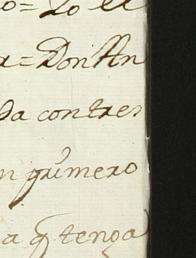 o = Lo el
a = Don An
da contres
n primero
a q tenga